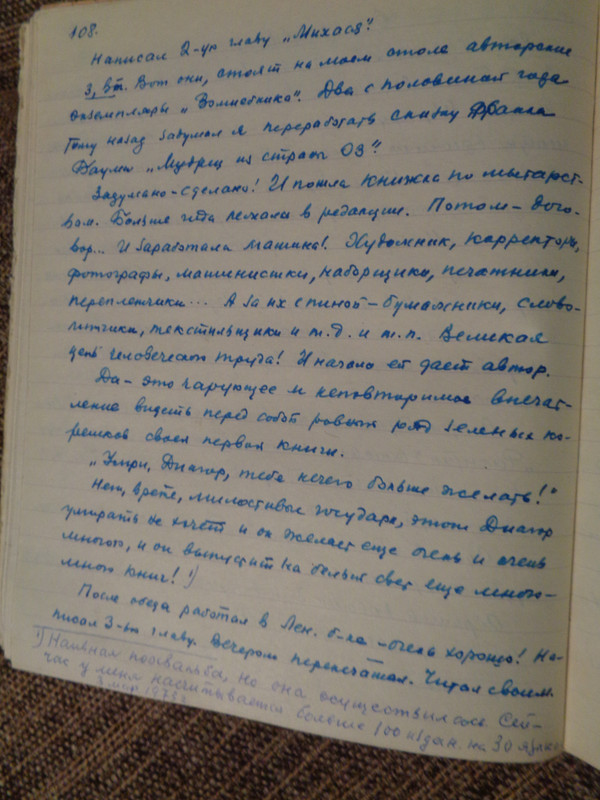 108.
Написал 2-ую главу „Михася".
3, вт. Вот они, стоят на моем столе авторские
экземпляры „Волшебника". Два с половиной года
тому назад задумал я переработать сказку Франка
Баума „Мудрец из страны Оз".
Задумано-сделано! И пошла книжка по мытарст-
вам. Больше года лежала в редакции. Потом – дого-
вор... И заработала машина! Художник, корректоры,
фотографы, машинистки, наборщики, печатники,
переплетчики... А за их спиной – бумажники, слово-
литчики, текстильщики и т.д. и т.п. Великая
цепь человеческого труда! И начало ей дает автор.
Да – это чарующее и неповторимое впечат-
ление видеть перед собой ровный ряд зеленых ко-
решков своей первой книги.
„Умри, Диагор, тебе нечего больше желать!"
Нет, врете, милостивые государи, этот Диагор
умирать не хочет и он желает еще очень и очень
многого, и он выпустит на белый свет еще много-
много книг! 1)
После обеда работал в Лен. б-ке – очень хорошо! На-
писал 3-ью главу. Вечером перепечатал. Читал своим.
1) Наивная похвальба, но она осуществилась. Сей-
час у меня насчитывается больше 100 издан. на 30 языках
3 мар 197